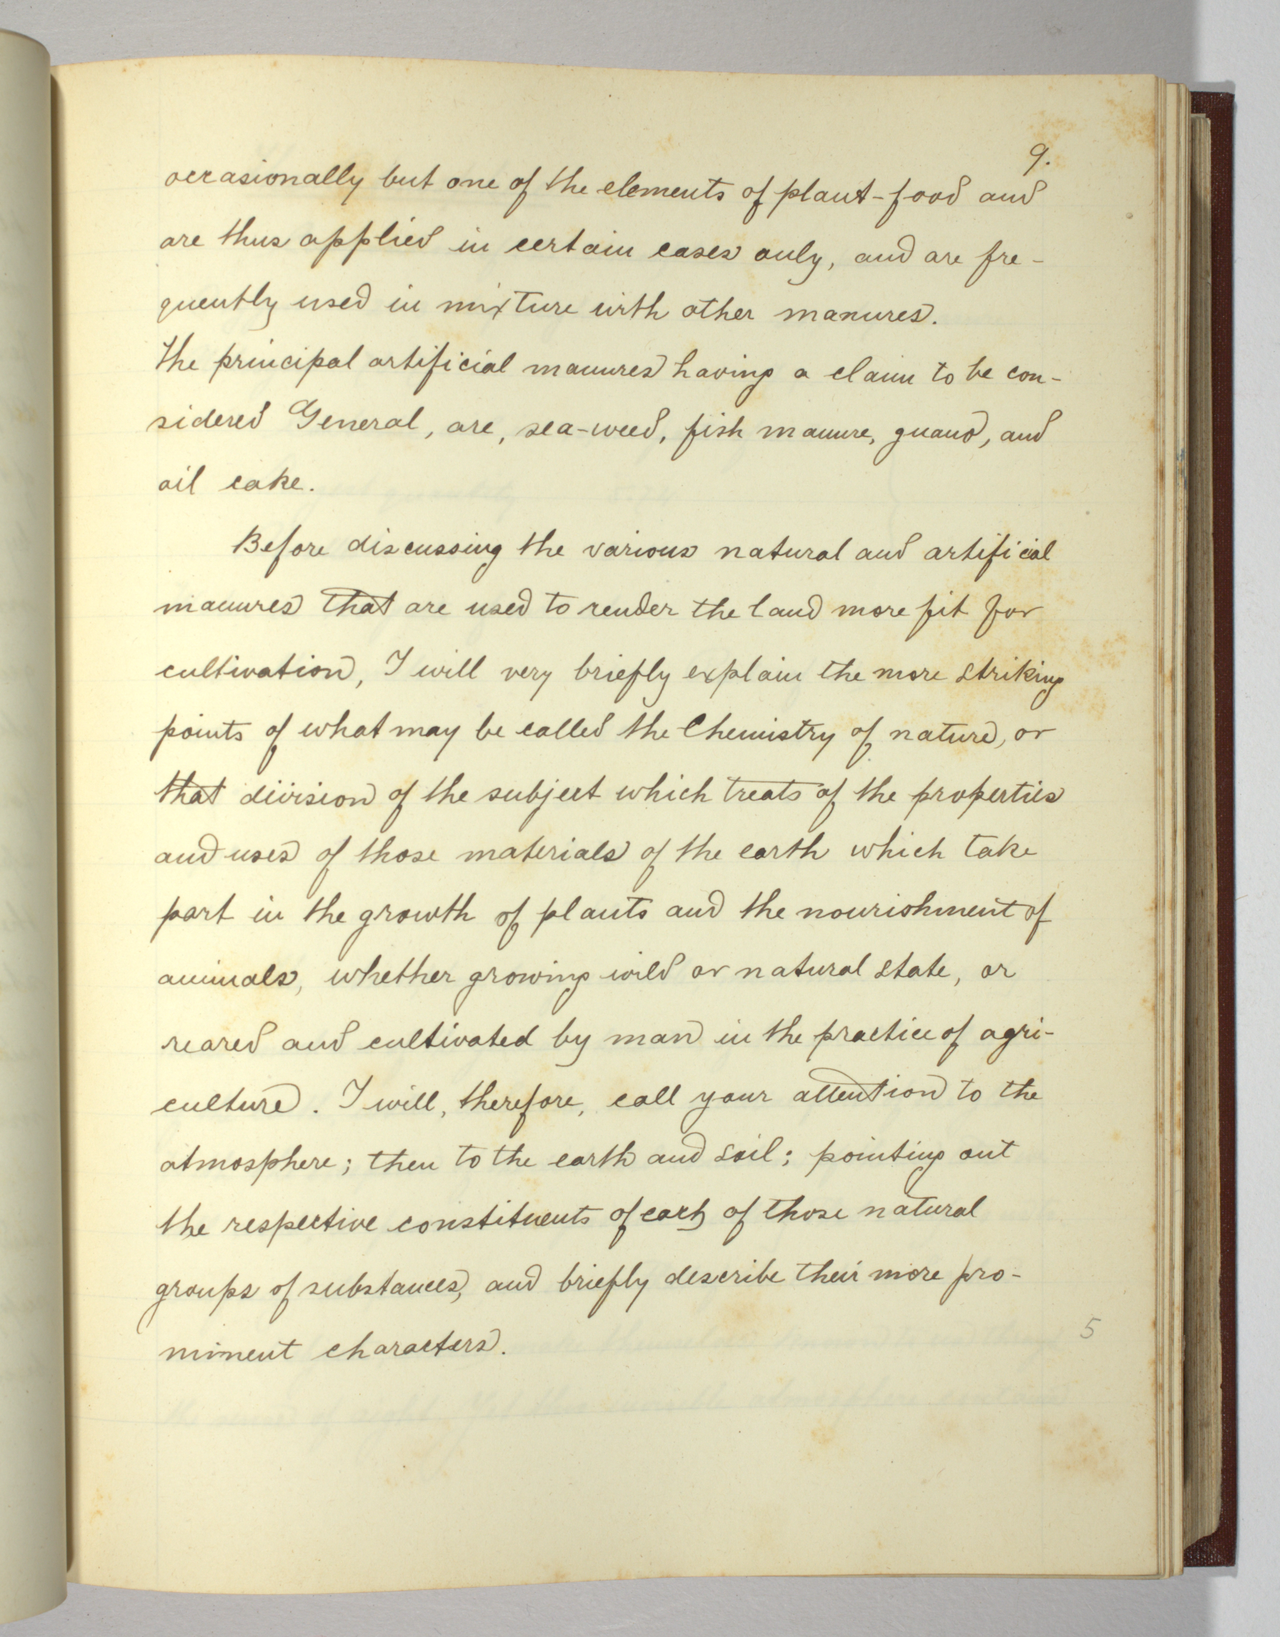 9.
occasionally but one of the elements of plant-food and
are thus applied in certain cases only, and are fre-
quently used in mixture with other manures.
The principal artificial manures having a claim to be con-
sidered General, are, sea-weed, fish manure, guano, and
oil cake.
Before discussing the various natural and artificial
manures that are used to render the land more fit for
cultivation, I will very briefly explain the more striking
points of what may be called the Chemistry of nature, or
that division of the subject which treats of the properties
and uses of those materials of the earth which take
part in the growth of plants and the nourishment of
animals, whether growing wild or natural state, or
reared and cultivated by man in the practice of agri-
culture. I will, therefore, call your attention to the
atmosphere; then to the earth and soil; pointing out
the respective constituents of each of those natural
groups of substances, and briefly describe their more pro-
minent characters.
5